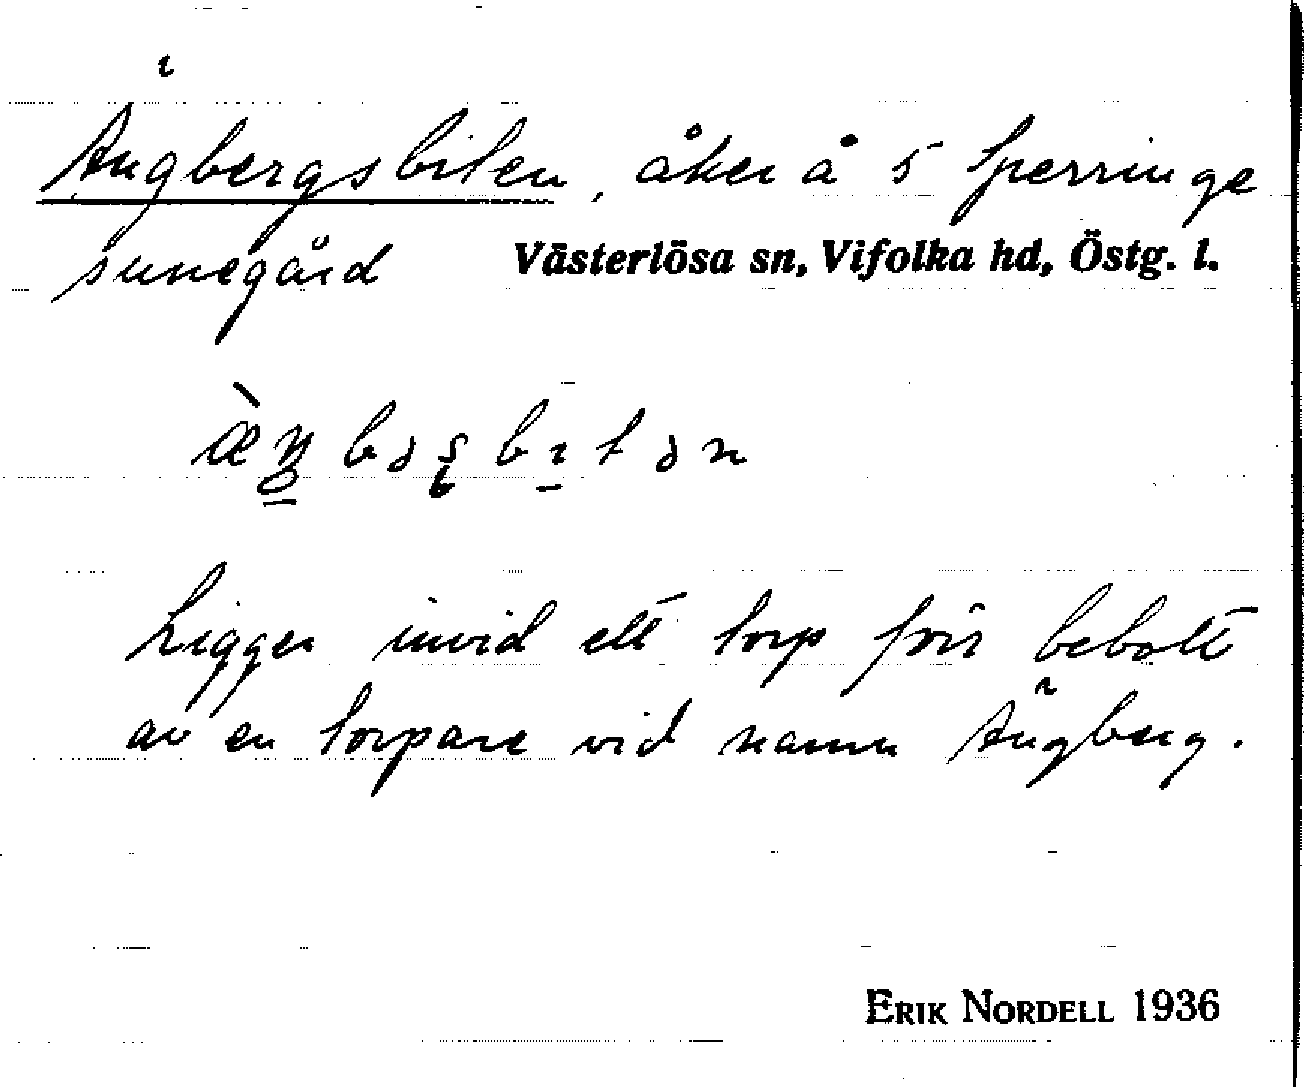 Ängbergsbiten, åker å 5 Sperringe
sunegård Västerlösa sn, Vifolka hd, Östg. l.
Ligger invid ett torp förr bebott
av en torpare vid namn Ängberg.
ERIK NORDELL 1936